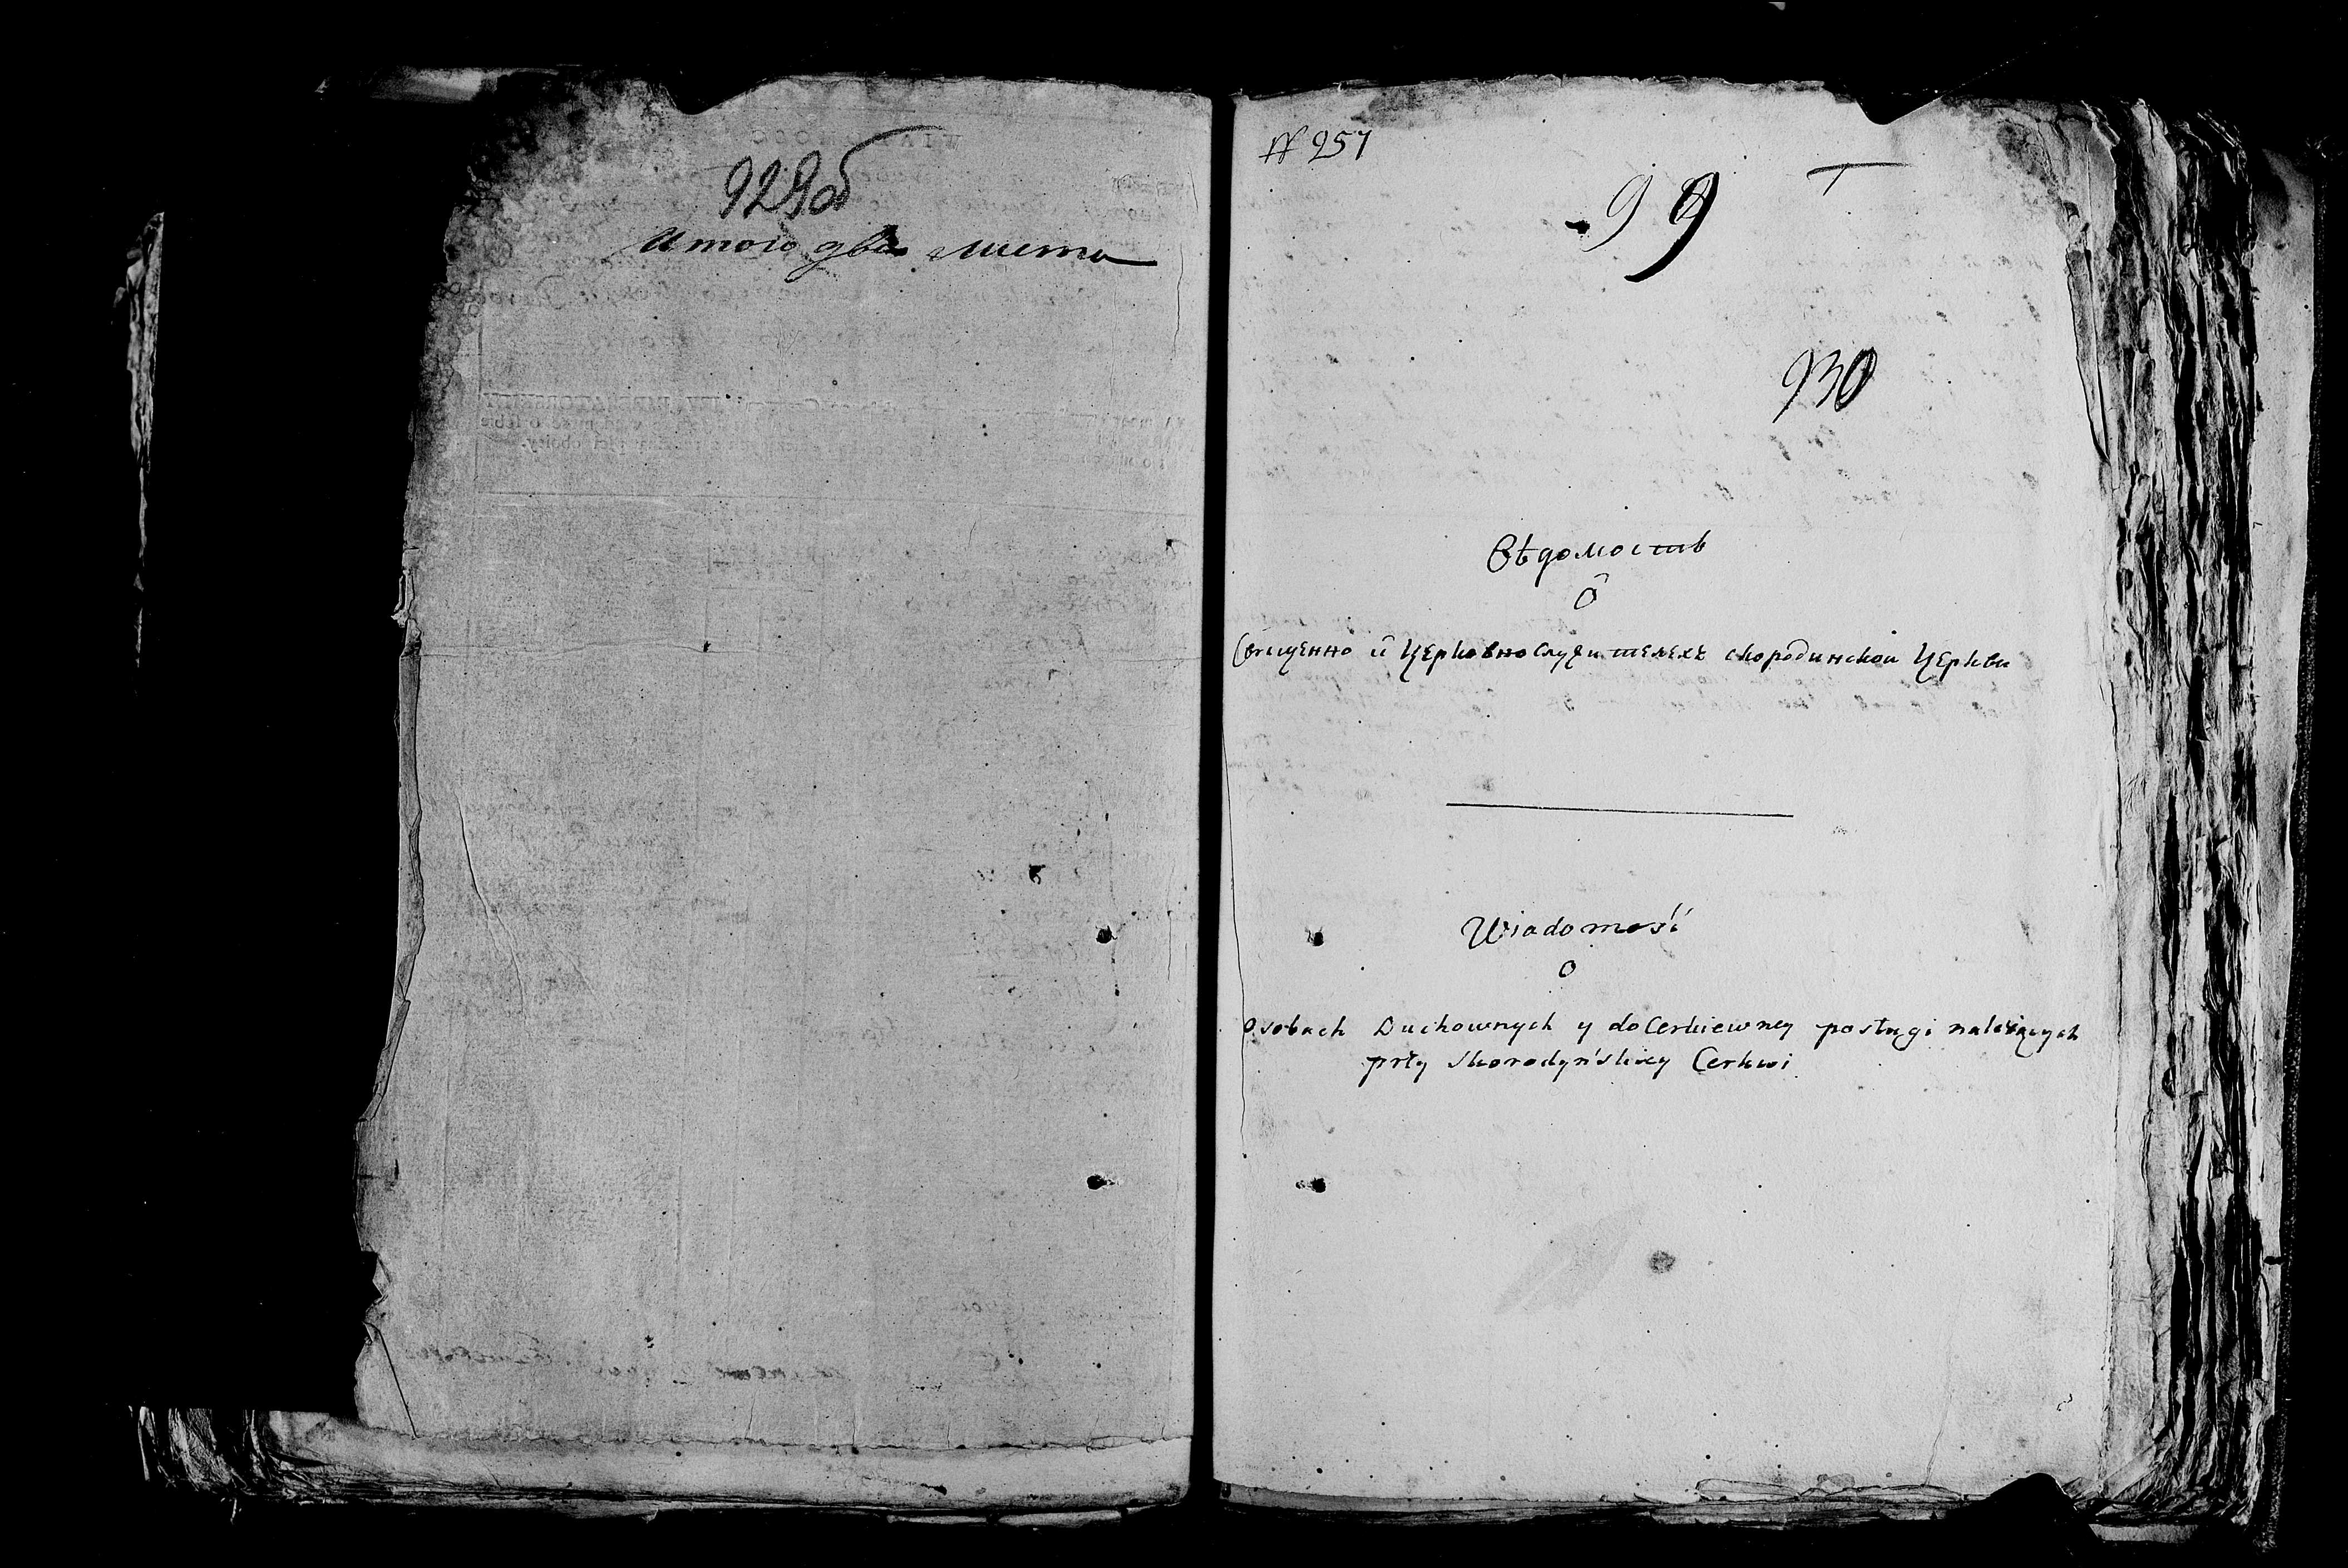 929об
Итого два листа
№ 257
99
930
Вѣдомость
О
Священно и Церковнослужителехъ скородинской Церкви
Wiadomość
o
osobach Duchownych y do Cerkiewney posługi należących
przy Skorodyńskiey Cerkwi